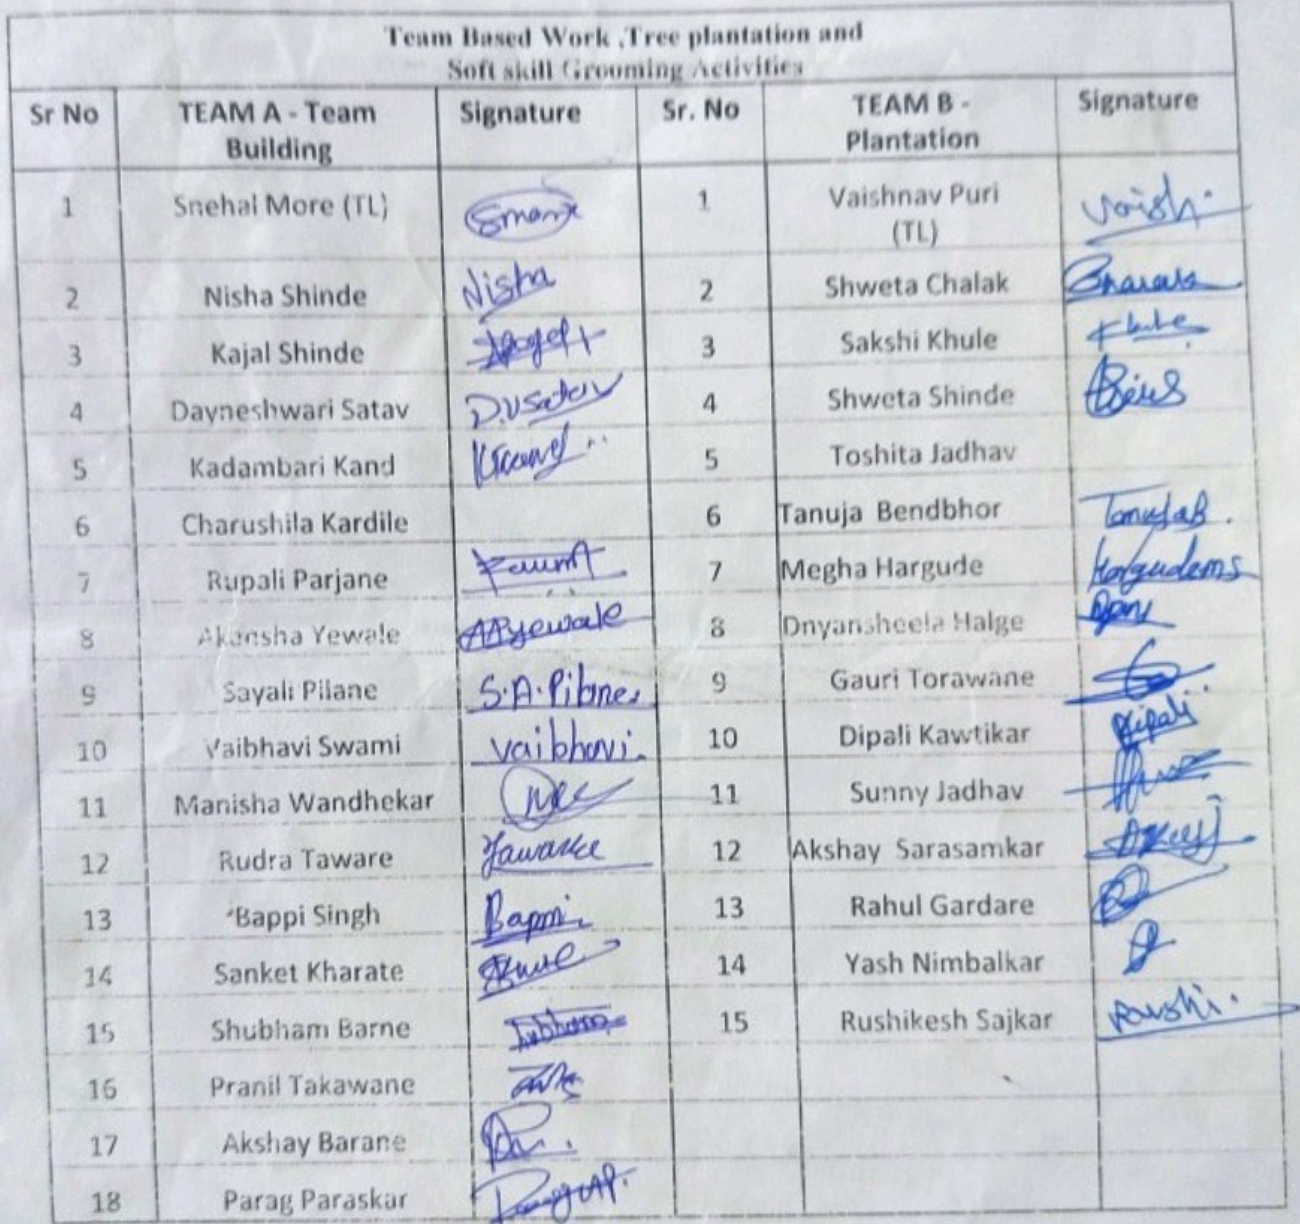 Team Based Work ,Tree plantation and
Soft skill Grooming Activities
Sr No TEAM A - Team Building Signature Sr. No TEAM B - Plantation Signature
1 Snehal More (TL) 1 Vaishnav Puri (TL) Vaish.
2 Nisha Shinde Nisha 2 Shweta Chalak
3 Kajal Shinde 3 Sakshi Khule
4 Dayneshwari Satav D.V.Satav 4 Shweta Shinde
5 Kadambari Kand 5 Toshita Jadhav
6 Charushila Kardile 6 Tanuja Bendbhor TanujaB.
7 Rupali Parjane 7 Megha Hargude Hargudems
8 Akansha Yewale APYewale 8 Dnyansheela Halge
9 Sayali Pilane S.A.Pilane. 9 Gauri Torawane
10 Vaibhavi Swami Vaibhavi. 10 Dipali Kawtikar Dipali
11 Manisha Wandhekar 11 Sunny Jadhav
12 Rudra Taware 12 Akshay Sarasamkar
13 Bappi Singh 13 Rahul Gardare
14 Sanket Kharate 14 Yash Nimbalkar
15 Shubham Barne 15 Rushikesh Sajkar
16 Pranil Takawane
17 Akshay Barane
18 Parag Paraskar